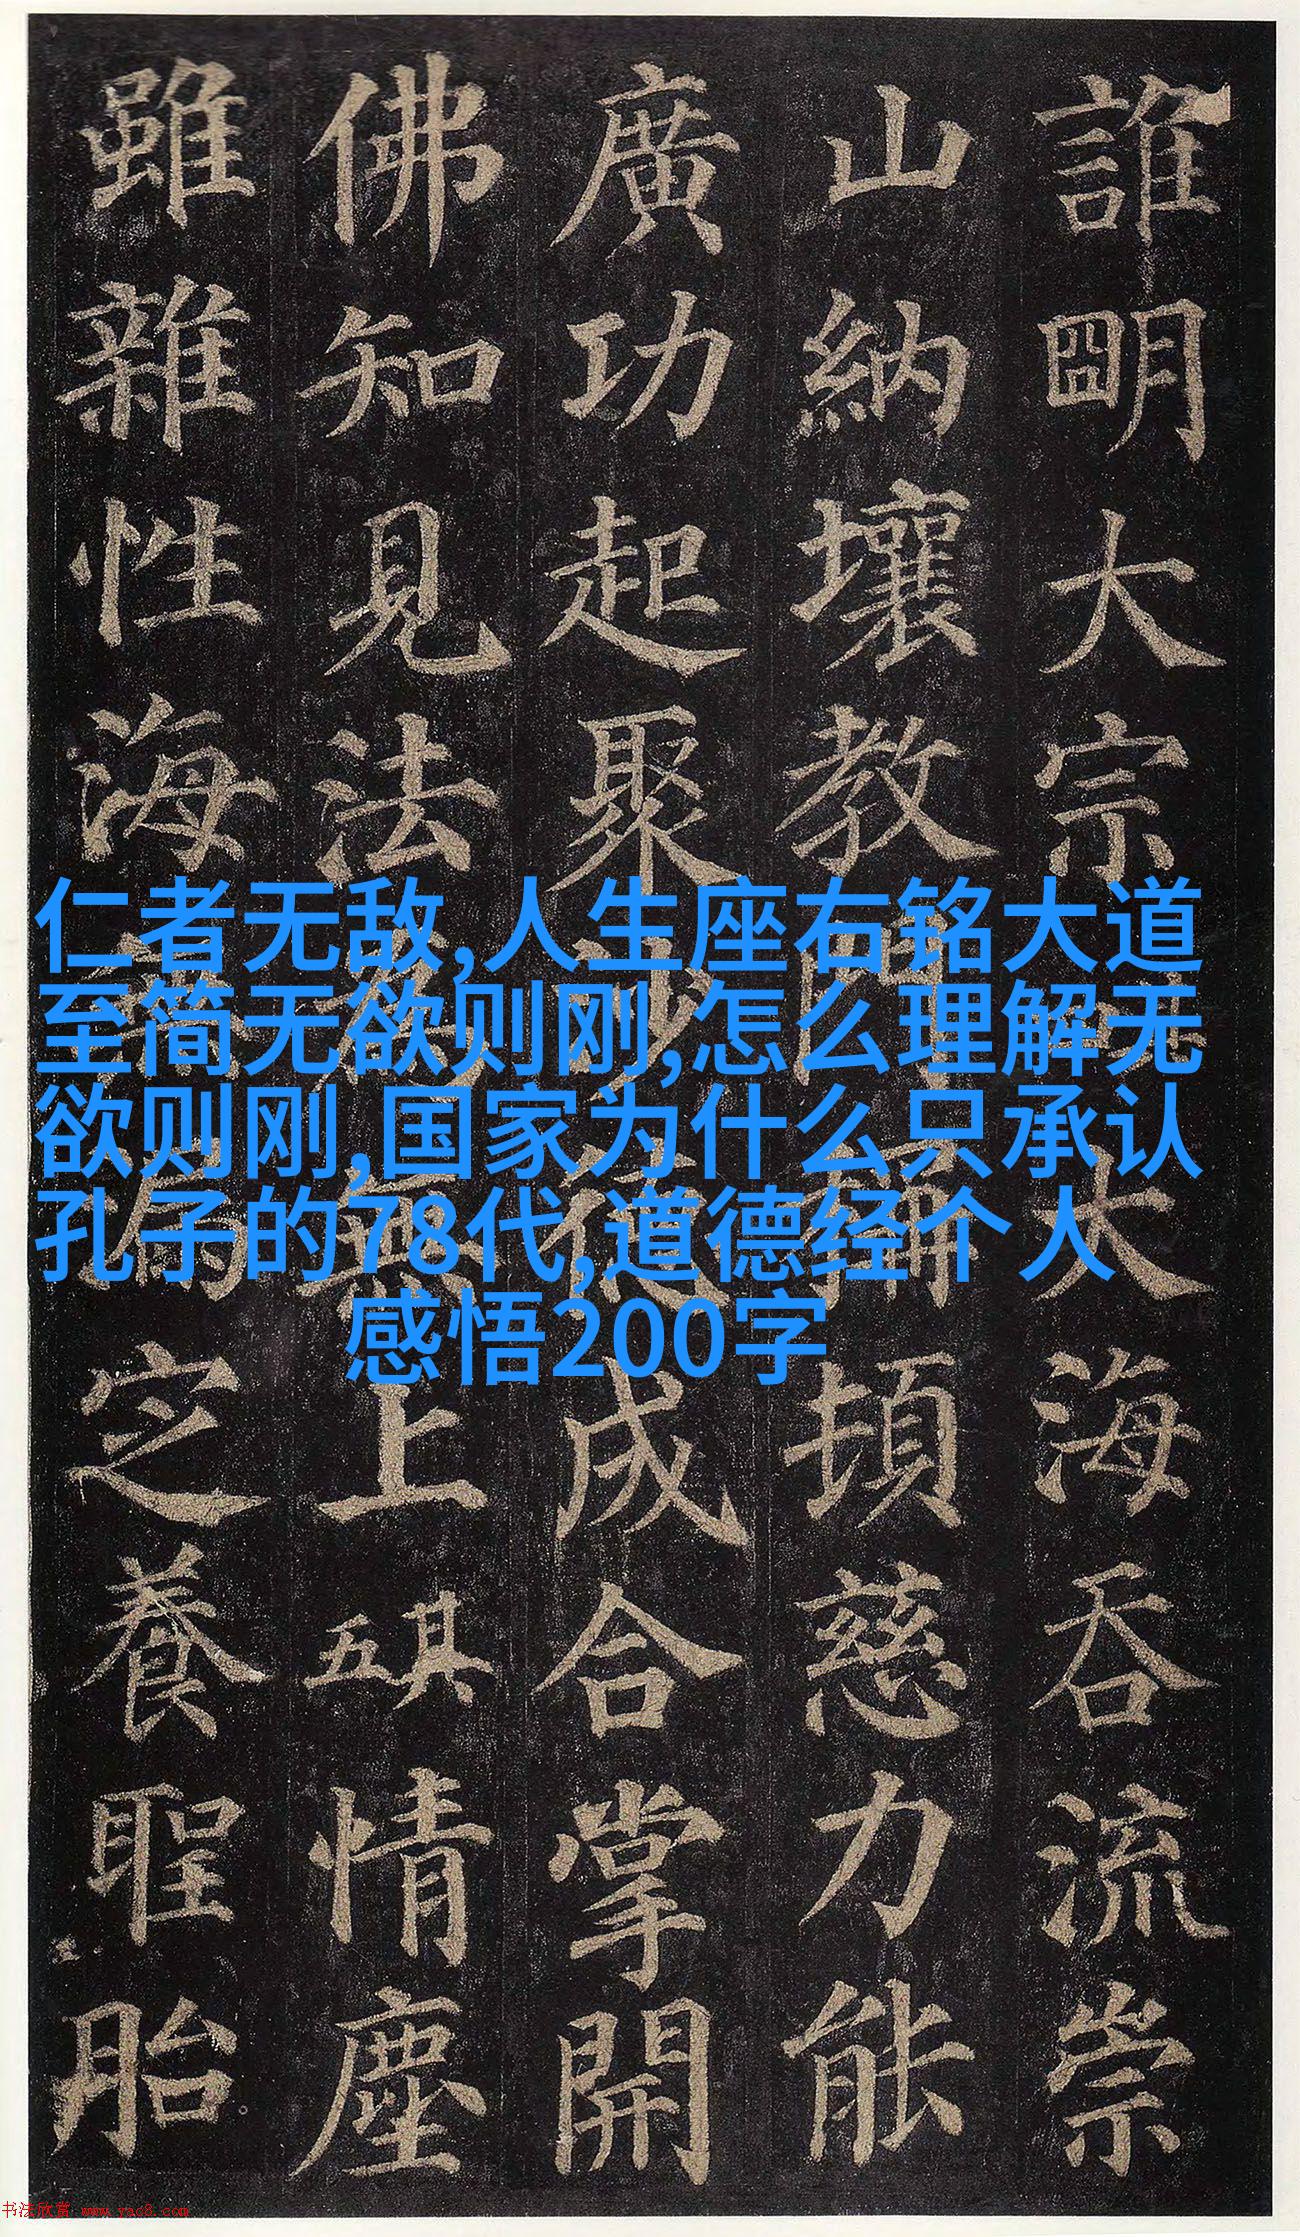 誰朙大宗大海吞流崇
山納壤教門稱頓慈力能
廣功起聚沙德成合掌開
佛知見法為無上其五情塵
雖雜性海無漏定養聖胎
仁者无敌,人生座右铭大道
至简无欲则刚,怎么理解无
欲则刚,国家为什么只承认
孔子的78代,道德经个人
感悟200字
书法欣赏 www.yac8.com